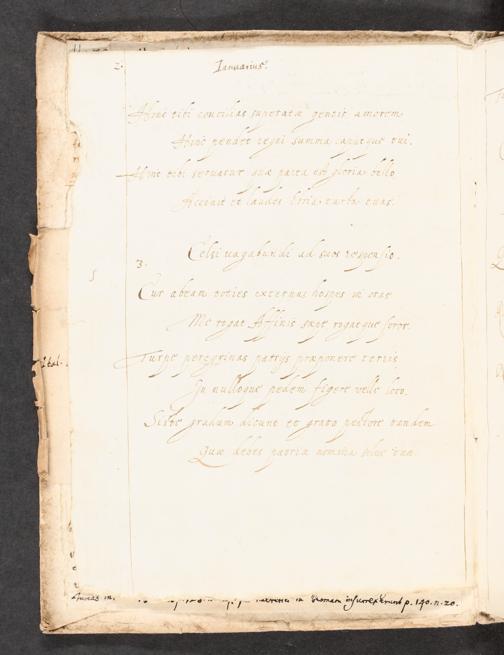 2. Ianuarius.
Hinc tibi concilias superatæ gentis amorem
Hinc pendet regni summa caputque tui.
Hinc tibi seruatur quæ parta est gloria bello
Accinit et laudes turba tuas.
Celsi uagabundi ad suos responsio.
3.
5
Cur abeam toties externas hospes in oras
Me rogat Affinis sæpe rogatque soror.
Turpe peregrinas patrijs præponere terris
In nulloque pedem figere velle loco.
Siste gradum dicunt et grato pectore tandem
Quæ debes patriæ tua
Ital.
in Romam insurrexerunt p. 190. n. 20.